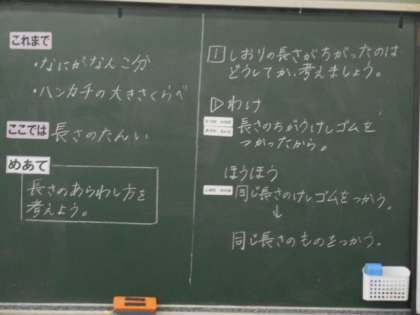 これまで
・なにがなんこ分
・ハンカチの大きさくらべ
ここでは
長さのたんい
めあて
長さのあらわし方を
考えよう。
1 しおりの長さがちがったのは
どうしてか、考えましょう。
▷わけ
長さのちがうけしゴムを
つかったから。
ほうほう
同じ長さのけしゴムをつかう。
↓
同じ長さのものをつかう。